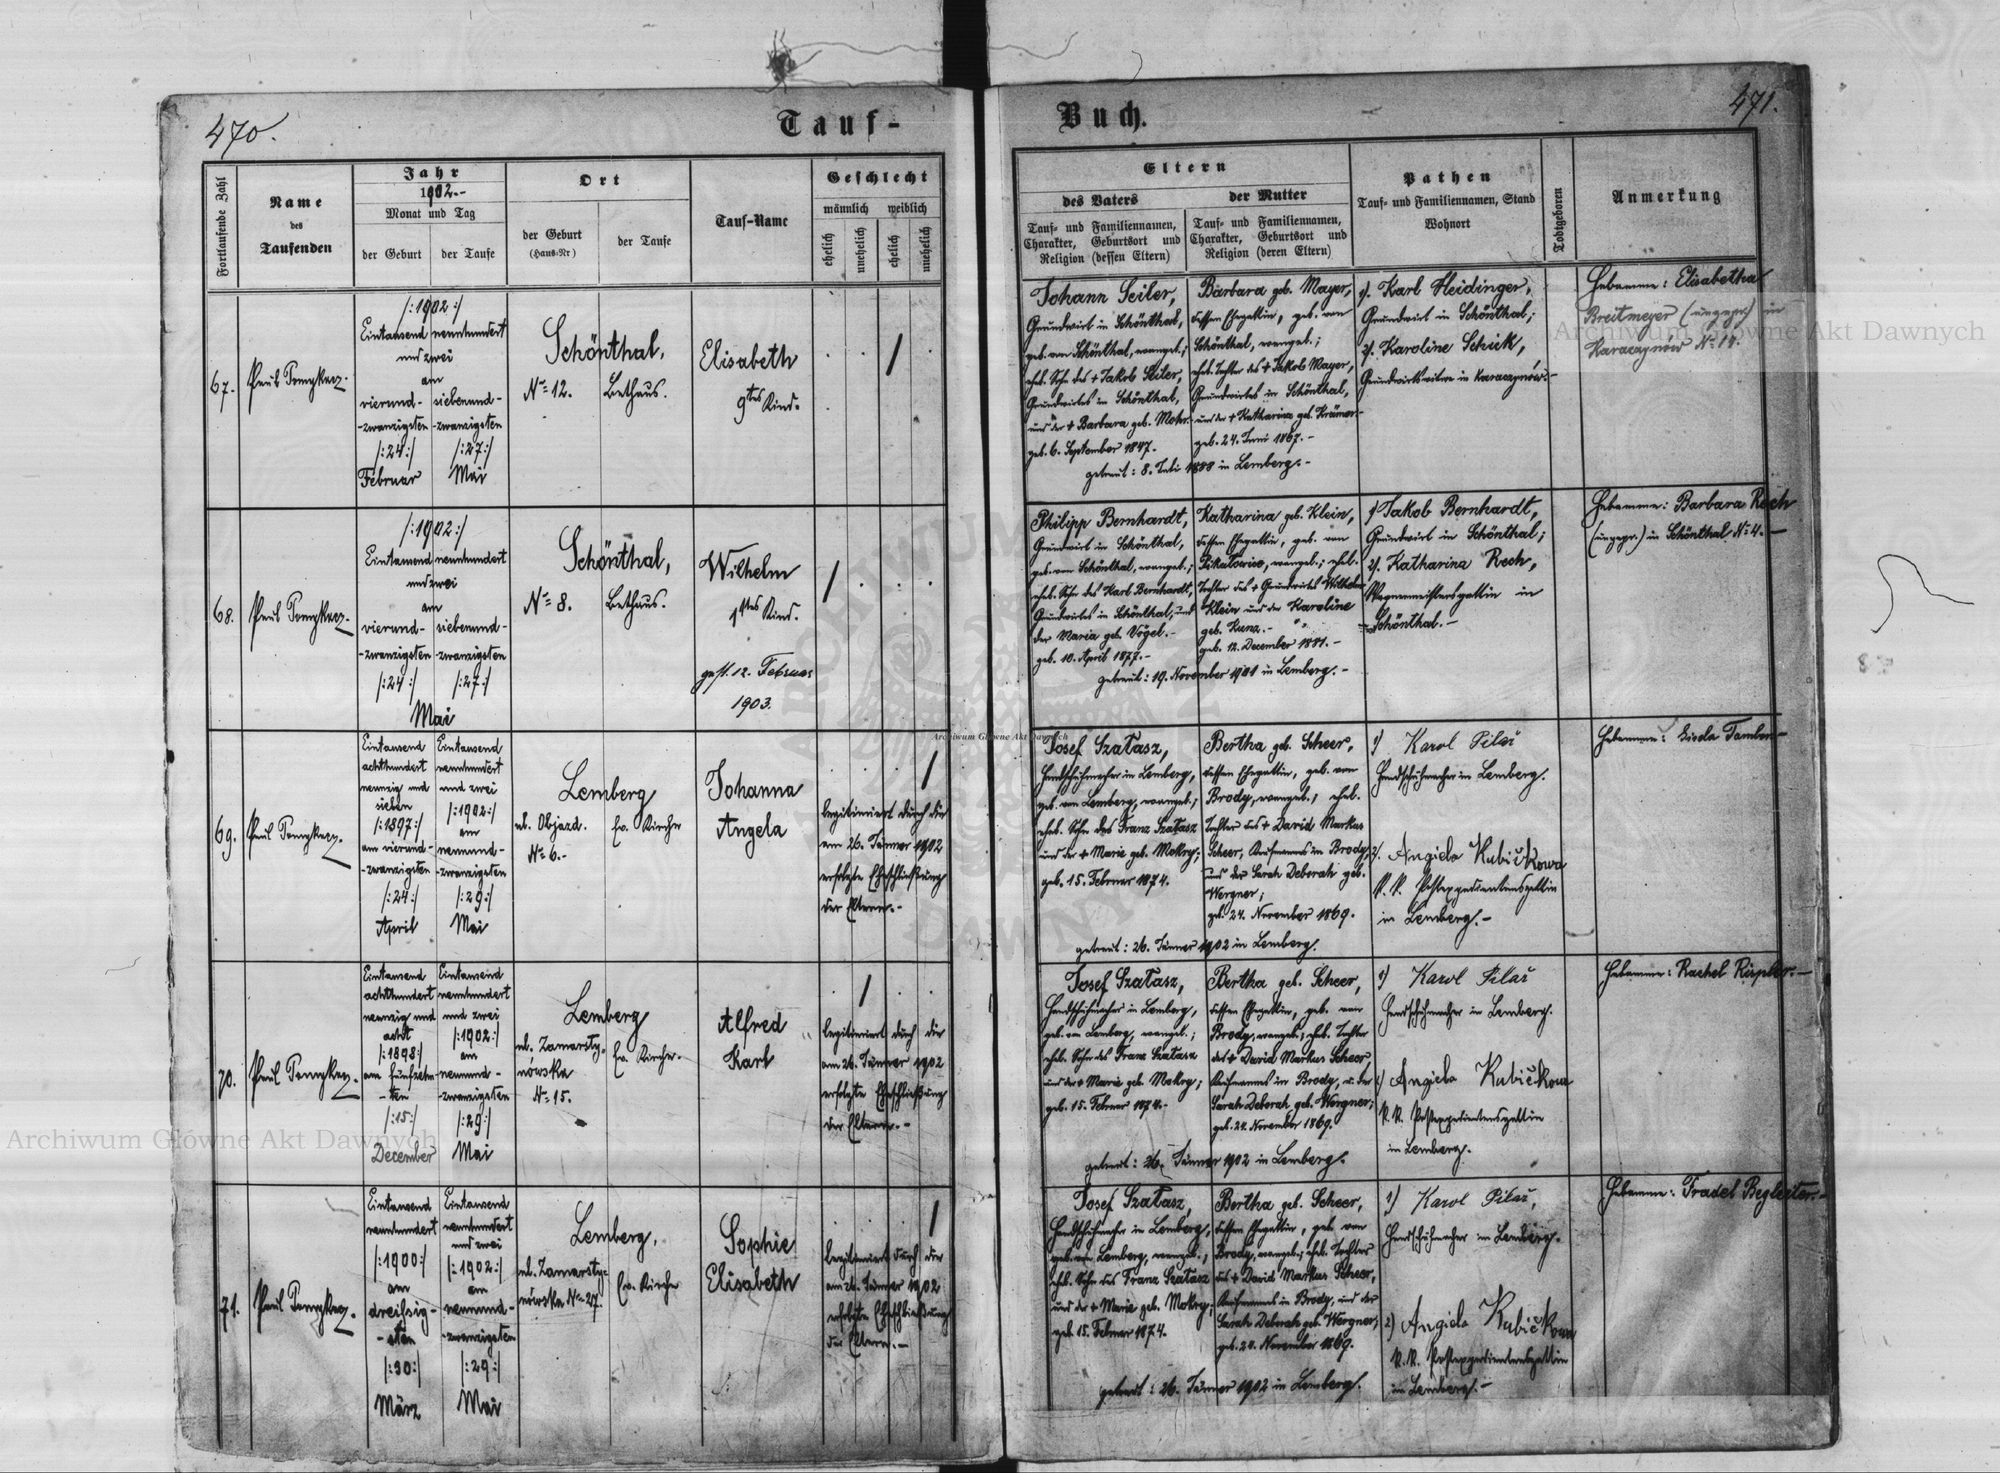 470.
Tauf-
Fortlaufende Zahl
Name
des
Taufenden
Jahr
1902.-
Monat und Tag
der Geburt
der Taufe
Ort
der Geburt
(Haus-Nr)
der Taufe
Tauf-Name
Geschlecht
männlich weiblich
ehelich
unehelich
ehelich
unehelich
67.
Paul
/:1902:/
Eintausend neunhundert
und zwei
am
vierund- siebenund-
-zwanzigsten -zwanzigsten
/:24:/ /:27:/
Februar Mai
Schönthal,
No 12. Bethaus.
Elisabeth
9tes Kind.
68.
Paul
/:1902:/
Eintausend neunhundert
und zwei
am
vierund- siebenund-
-zwanzigsten -zwanzigsten
/:24:/ /:27:/
Mai
Schönthal,
No 8. Bethaus.
Wilhelm
1tes Kind.
gest. 12. Februar
1903.
69.
Paul
Eintausend
achthundert
neunzig und
sieben
/:1897:/
am vierund-
-zwanzigsten
/:24:/
April
Eintausend
neunhundert
und zwei
/:1902:/
am
neunund-
-zwanzigsten
/:29:/
Mai
Lemberg
ul. Objazd.
No 6.-
Ev. Kirche
Johanna
Angela
legitimiert durch die
am 26. Jänner 1902
erfolgte Eheschließung
der Eltern.-
70.
Paul
Eintausend
achthundert
neunzig und
acht
/:1898:/
am fünfzehn-
-ten
/:15:/
December
Eintausend
neunhundert
und zwei
/:1902:/
am
neunund-
-zwanzigsten
/:29:/
Mai
Lemberg
ul. Zamarsty-
nówska
No 15.
Ev. Kirche.
Alfred
Karl
legitimiert durch die
am 26. Jänner 1902
erfolgte Eheschließung
der Eltern.-
71.
Paul
Eintausend
neunhundert
/:1900:/
am
dreissig-
-sten
/:30:/
März
Eintausend
neunhundert
und zwei
/:1902:/
am
neunund-
-zwanzigsten
/:29:/
Mai
Lemberg,
ul. Zamarsty-
nówska No 27.
Ev. Kirche
Sophie
Elisabeth
legitimiert durch die
am 26. Jänner 1902
erfolgte Eheschließung
der Eltern.-
Buch.
471.
Eltern
des Vaters
Tauf- und Familiennamen,
Charakter, Geburtsort und
Religion (dessen Eltern)
der Mutter
Tauf- und Familiennamen,
Charakter, Geburtsort und
Religion (deren Eltern)
Pathen
Tauf- und Familiennamen, Stand
Wohnort
Todtgeboren
Anmerkung
Johann Seiler,
Grundwirt in Schönthal,
geb. von Schönthal, evangel.;
ehel. Sohn des + Jakob Seiler,
Grundwirtes in Schönthal,
und der + Barbara geb. Mohr.
geb. 6. September 1847.
Barbara geb. Mayer,
dessen Ehegattin, geb. von
Schönthal, evangel.;
ehel. Tochter des + Jakob Mayer,
Grundwirtes in Schönthal,
und der + Katharina geb. Krämer.
geb. 24. Juni 1867.-
getraut: 8. Juli 1888 in Lemberg.-
1). Karl Heidinger,
Grundwirt in Schönthal;
2). Karoline Schick,
Grundwirtswitwe in Karaczynów.-
Hebamme: Elisabetha
Breitmeyer (ungepr.) in
Karaczynów No 14.
Philipp Bernhardt,
Grundwirt in Schönthal,
geb. von Schönthal, evangel.;
ehel. Sohn des Karl Bernhardt,
Grundwirtes in Schönthal, und
der Maria geb. Vögel.-
geb. 10. April 1877.-
Katharina geb. Klein,
dessen Ehegattin, geb. von
evangel.; ehel.
Tochter des + Grundwirtes Wilhelm
Klein und der Karoline
geb. Kunz.-
geb. 12. December 1881.-
getraut: 19. November 1901 in Lemberg.-
1) Jakob Bernhardt,
Grundwirt in Schönthal;
2). Katharina Rech,
Wagnermeistersgattin in
Schönthal.-
Hebamme: Barbara Rech
(ungepr.) in Schönthal No 4.-
Josef Szałasz,
Handschuhmacher in Lemberg,
geb. von Lemberg, evangel.;
ehel. Sohn des Franz Szałasz
und der + Marie geb. Mokry;
geb. 15. Februar 1874.
Bertha geb. Scheer,
dessen Ehegattin, geb. von
Brody, evangel.; ehel.
Tochter des + David Markus
Scheer, Kaufmanns in Brody,
und der Sarah Deborah geb.
Wergner;
geb. 24. November 1869.
getraut: 26. Jänner 1902 in Lemberg.
1) Karol Pilař
Handschuhmacher in Lemberg.
2). Angiela Kubičkowa
K. K. Postexpedientensgattin
in Lemberg.-
Hebamme: Gisela
Josef Szałasz,
Handschuhmacher in Lemberg,
geb. von Lemberg, evangel.;
ehel. Sohn des Franz Szałasz
und der + Marie geb. Mokry;
geb. 15. Februar 1874.-
Bertha geb. Scheer,
dessen Ehegattin, geb. von
Brody, evangel.; ehel. Tochter
des + David Markus Scheer
Kaufmanns in Brody, u. der
Sarah Deborah geb. Wergner;
geb. 24. November 1869.
getraut: 26. Jänner 1902 in Lemberg.
1) Karol Pilař
Handschuhmacher in Lemberg.
2) Angiela Kubičkowa
K. K. Postexpedientensgattin
in Lemberg.
Hebamme: Rachel
Josef Szałasz,
Handschuhmacher in Lemberg,
geb. von Lemberg, evangel.;
ehel. Sohn des Franz Szałasz
und der + Marie geb. Mokry;
geb. 15. Februar 1874.
Bertha geb. Scheer,
dessen Ehegattin, geb. von
Brody, evangel.; ehel. Tochter
des + David Markus Scheer,
Kaufmanns in Brody, und der
Sarah Deborah geb. Wergner;
geb. 24. November 1869.
getraut: 26. Jänner 1902 in Lemberg.
1) Karol Pilař,
Handschuhmacher in Lemberg.
2) Angiela Kubičkowa
K. K. Postexpedientensgattin
in Lemberg.-
Hebamme: Fradel Begleiter.-
Archiwum Główne Akt Dawnych
Archiwum Główne Akt Dawnych
Archiwum Główne Akt Dawnych